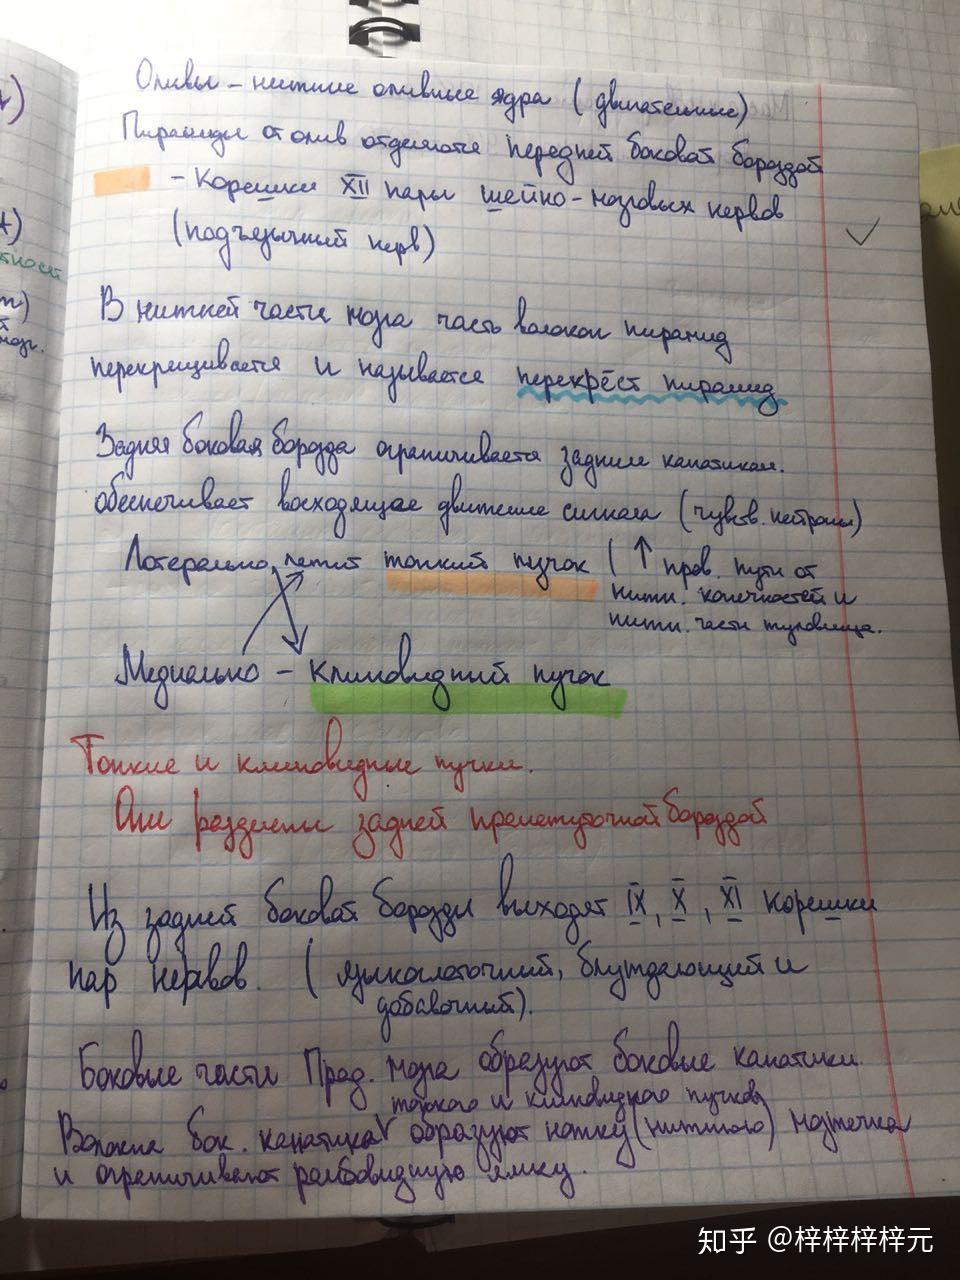 Оливы – нижние оливные ядра (двигательные)
Пирамиды от олив отделяются передней боковой бороздой
– Корешки XII пары шейно-мозговых нервов
(подъязычный нерв)
В нижней части мозга часть волокон пирамид
перекрещивается и называется перекрёст пирамид
Задняя боковая борозда ограничивается задним канатикам.
обеспечивает восходящее движение сигнала (чувств. нейроны)
Латерально лежит тонкий пучок (↑ пров. пути от
нижн. конечностей и
нижн. части туловища.
Медиально – Клиновидный пучок
Тонкие и клиновидные пучки.
Они разделены задней промежуточной бороздой
Из задней боковой борозды выходят IX, X, XI корешки
пар нервов. (языкоглоточный, блуждающий и
добавочный).
Боковые части Прод. мозга образуют боковые канатики.
тонкого и клиновидного пучков
Волокна бок. канатика образуют ножку (нижнюю) мозжечка
и ограничивают ромбовидную ямку.
知乎 @梓梓梓梓元